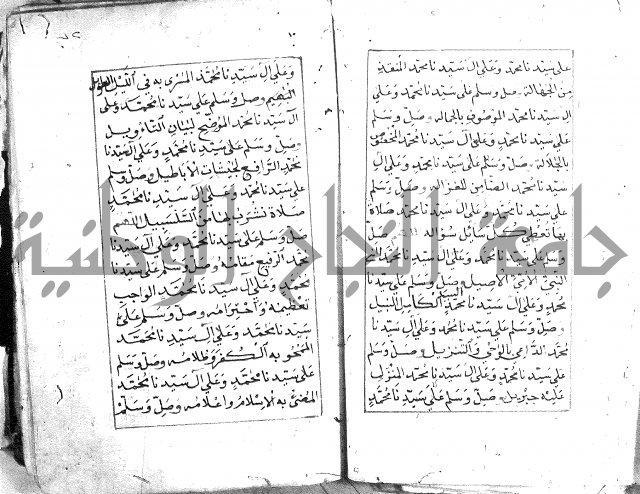 على سيدنا محمد وعلى ال سيدنا محمد المنقذ
من الجهالة وصل وسلم على سيدنا محمد وعلى
ال سيدنا محمد الموصوف بالجماله وصل وسلم
على سيدنا محمد وعلى ال سيدنا محمد
بالجلالة وصل وسلم على سيدنا محمد وعلى ال
سيدنا محمد الضامن للغزاله وصل وسلم
على سيدنا محمد وعلى ال سيدنا محمد صلاة
بها تعطى كل سائل سؤاله وصل
وسلم على سيدنا محمد وعلى ال سيدنا محمد
النبي الاصيل وصل وسلم على سيدنا
محمد وعلى ال سيدنا محمد السيد الكامل النبيل
وصل وسلم على سيدنا محمد وعلى ال سيدنا
محمد بالوحي والتنزيل وصل وسلم
على سيدنا محمد وعلى ال سيدنا محمد المنزل
عليه جبريل وصل وسلم على سيدنا محمد
وعلى ال سيدنا محمد المسرى به في الليل الطويل
البهيم وصل وسلم على سيدنا محمد وعلى
ال سيدنا محمد الموضح لبيان التاءويل
وصل وسلم على سيدنا محمد وعلى ال سيدنا
محمد الرافع الاباطيل وصل وسلم
على سيدنا محمد وعلى ال سيدنا محمد
صلاة تشرق بها من
صل وسلم على سيدنا محمد وعلى ال سيدنا
محمد الرفيع مقامه وصل وسلم على سيدنا
محمد وعلى ال سيدنا محمد الواجب
تعظيمه واحترامه وصل وسلم على
سيدنا محمد وعلى ال سيدنا محمد
الممحو به الكفر وظلامه وصل وسلم
على سيدنا محمد وعلى ال سيدنا محمد
المضئ به الاسلام واعلامه وصل وسلم
جامعة النجاح الوطنية